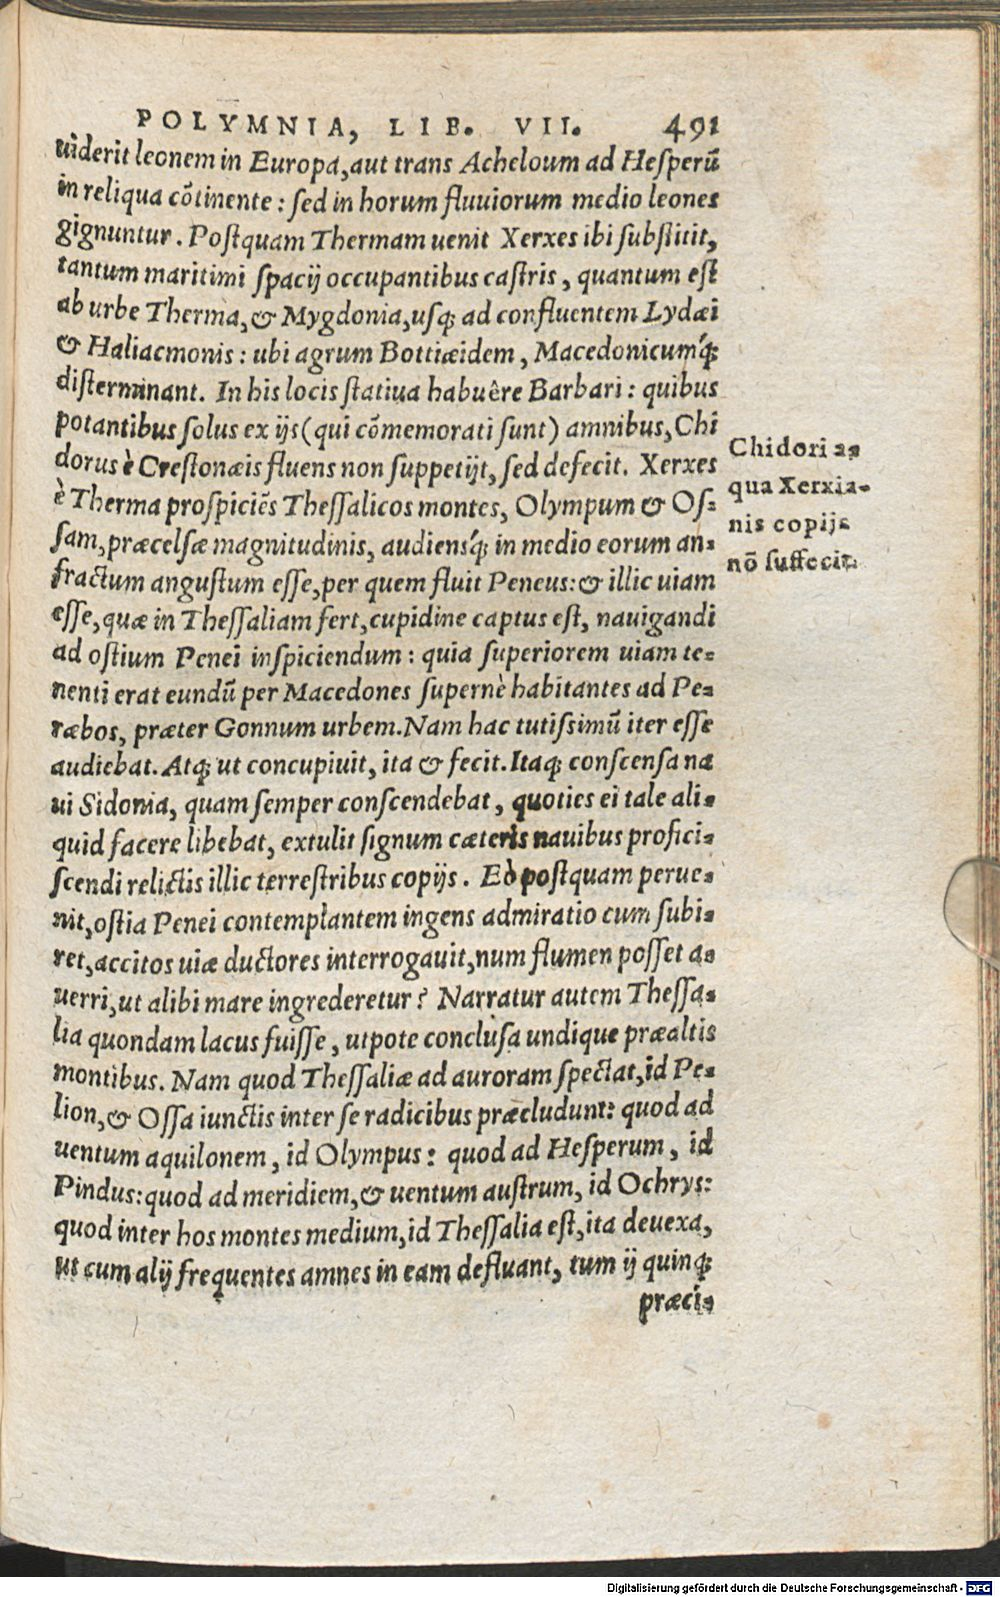 POLYMNIA, LIB. VII. 491
uiderit leonem in Europa, aut trans Acheloum ad Heſperũ
in reliqua cõtinente: ſed in horum fluuiorum medio leones
gignuntur. Poſtquam Thermam uenit Xerxes ibi ſubſtitit,
tantum maritimi ſpacij occupantibus caſtris, quantum eſt
ab urbe Therma, & Mygdonia, uſq; ad confluentem Lydæi
& Haliacmonis: ubi agrum Bottiæidem, Macedonicumq́;
diſterminant. In his locis ſtatiua habuêre Barbari: quibus
potantibus ſolus ex ijs (qui cõmemorati ſunt) amnibus, Chi
dorus è Creſtonæis fluens non ſuppetijt, ſed defecit. Xerxes
è Therma proſpiciẽs Theſſalicos montes, Olympum & Oſ-
ſam, præcelſæ magnitudinis, audiensq́; in medio eorum an-
fractum anguſtum eſſe, per quem fluit Peneus: & illic uiam
eſſe, quæ in Theſſaliam fert, cupidine captus eſt, nauigandi
ad oſtium Penei inſpiciendum: quia ſuperiorem uiam te-
nenti erat eundũ per Macedones ſupernè habitantes ad Pe-
ræbos, præter Gonnum urbem. Nam hac tutiſsimũ iter eſſe
audiebat. Atq; ut concupiuit, ita & fecit. Itaq; conſcenſa na
ui Sidonia, quam ſemper conſcendebat, quoties ei tale ali-
quid facere libebat, extulit ſignum cæteris nauibus profici-
ſcendi relictis illic terreſtribus copijs. Eò poſtquam perue-
nit, oſtia Penei contemplantem ingens admiratio cum ſubi-
ret, accitos uiæ ductores interrogauit, num flumen poſſet a-
uerri, ut alibi mare ingrederetur? Narratur autem Theſſa-
lia quondam lacus fuiſſe, utpote concluſa undique præaltis
montibus. Nam quod Theſſaliæ ad auroram ſpectat, id Pe-
lion, & Oſſa iunctis inter ſe radicibus præcludunt: quod ad
uentum aquilonem, id Olympus: quod ad Heſperum, id
Pindus: quod ad meridiem, & uentum auſtrum, id Ochrys:
quod inter hos montes medium, id Theſſalia eſt, ita deuexa,
ut cum alij frequentes amnes in eam defluant, tum ij quinq;
præci-
Chidori a-
qua Xerxia-
nis copijs
nõ ſuffecit.
Digitalisierung gefördert durch die Deutsche Forschungsgemeinschaft - DFG